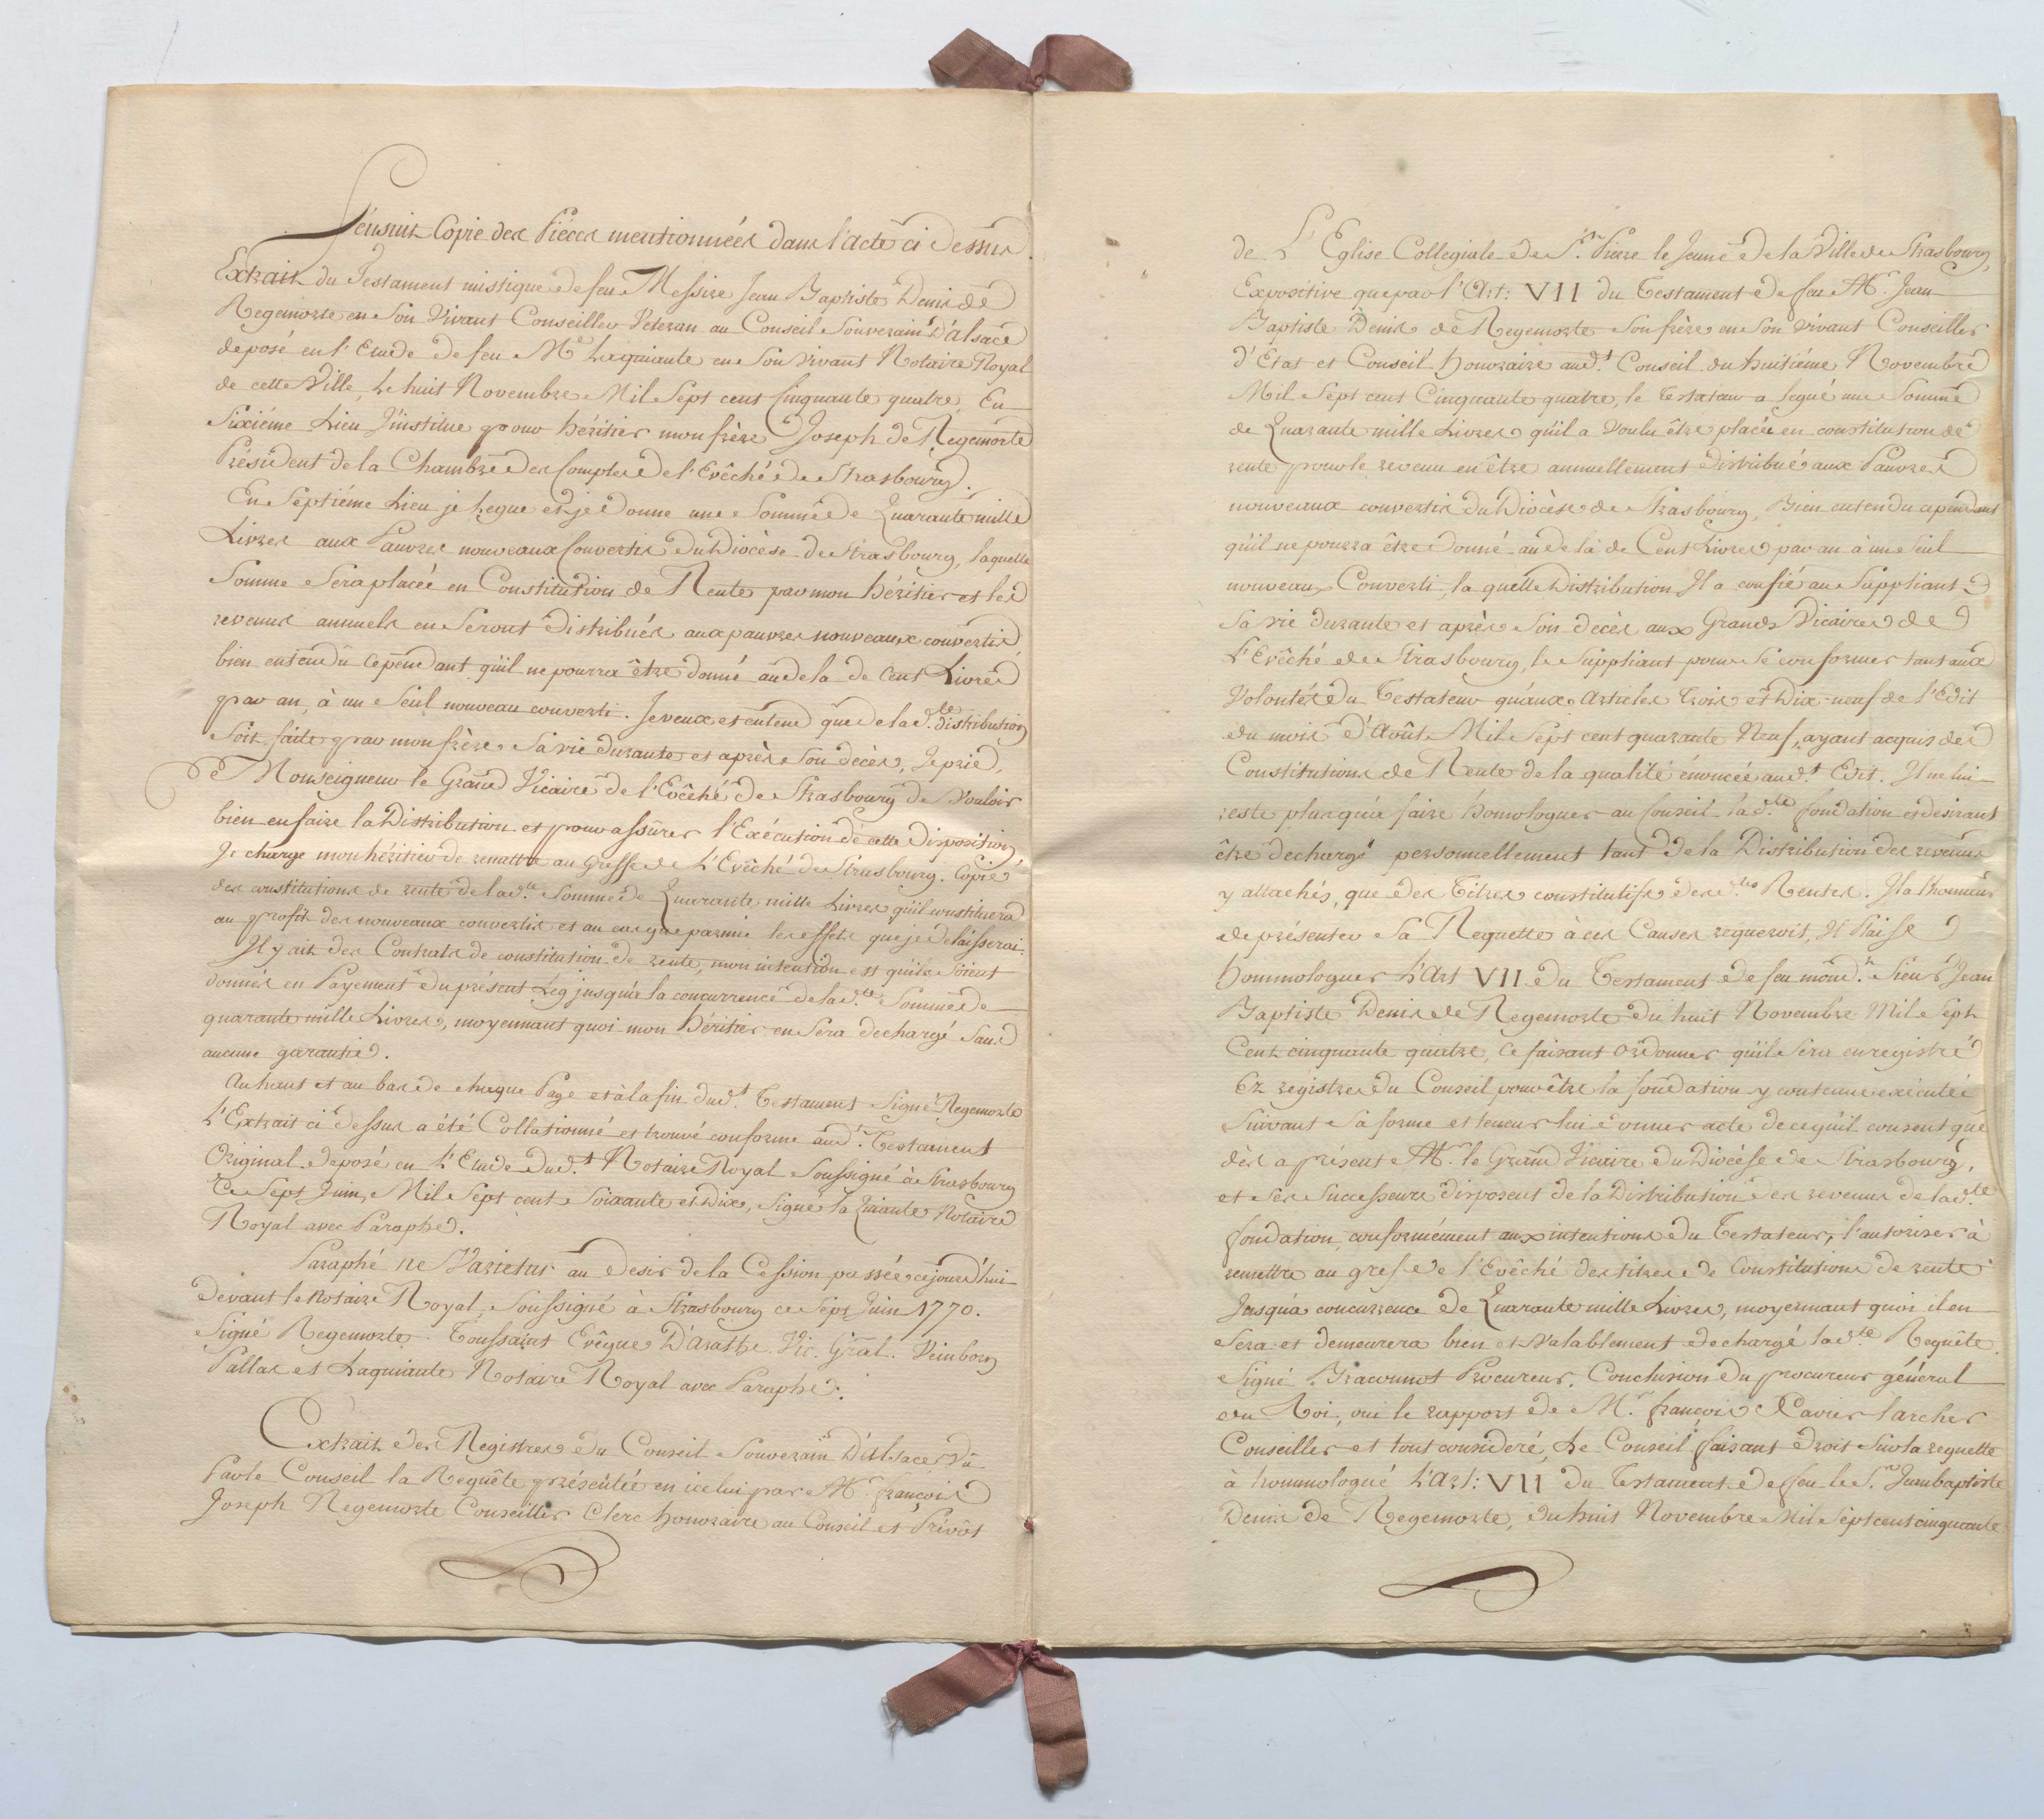 S'ensuit Copie des Piéces mentionnées dans l'acte ci dessus.
Extrait du Testament mistique de feu Messire Jean Baptiste Denis de
Regemorte en Son Vivant Conseiller Veteran au Conseil Souverain d'alsace
deposé en l'Etude de feu Me. Laquiante en Son vivant Notaire Royal
de cette Ville, Le huit Novembre Mil Sept cent Cinquante quatre, En
Sixiéme Lieu J'institue pour héritier mon frère Joseph de Regemorte
Président de la Chambre des Comptes de l'Evêché de Strasbourg.
En Septiéme Lieu je Legue et je Donne une Somme de Quarante mille
Livres aux Pauvres nouveaux Convertis du Diocèse de Strasbourg, laquelle
Somme Sera placée en Constitution de Rente par mon héritier et les
revenus annuels en Seront distribués aux pauvres nouveaux convertis,
bien entendu cependant qu'il ne pourra être donné au dela de Cent Livres
par an, à un Seul nouveau converti. Je veux et entend que de lad.te distribution
Soit faite par mon frère Sa vie durante et après Son decès, Je prie,
Monseigneur le Grand Vicaire de l'Evêché de Strasbourg de Vouloir
bien en faire la Distribution et pour assûrer l'Exécution de cette Disposition
Je charge mon héritier de remettre au Greffe de L'Evêché de Strasbourg. Copie
des constitutions de rente de lad.te Somme de Quarante mille Livres qu'il constituera
au profit des nouveaux convertis et au cas que parmie les effets que je delaisserai
Il y ait des Contrats de constitution de rente, mon intention est qu'ils Soient
donnés en Payement du présent Leg jusqu'à la concurrence de lad.te Somme de
quarante mille Livres, moyennant quoi mon héritier en Sera dechargé Sans
aucune garantie.
Au haut et au bas de chaque Page et à la fin dud.t Testament Signé Regemorte
L'Extrait ci dessus a été Collationné et trouvé conforme aud.t Testament
Original deposé en L'Etude dud.t Notaire Royal Soussigné à Strasbourg
Ce Sept Juin, Mil Sept cent Soixante et Dix, Signé la Quiante Notaire
Royal avec Paraphe.
Paraphé ne Varietur au desir de la Cession passée cejourd'hui
devant le Notaire Royal, Soussigné à Strasbourg ce Sept Juin 1770.
Signé Regemorte. Toussaint Evêque D'Arath. Vic. Gral. Weinborn
Pallas et Laquiante Notaire Royal avec Paraphe.
Extrait des Registres du Conseil Souverain D'alsace Vû
Par le Conseil la Requête présentée en icelui par Mr. François
Joseph Regemorte Conseiller Clerc honoraire au Conseil et Prévôt
de L'Eglise Collegiale de St. Pierre le Jeune de la Ville de Strasbourg,
Expositive que par l'Art: VII du Testament de feu Mr. Jean
Baptiste Denis de Regemorte Son frère en Son vivant Conseiller
d'Etat et Conseil honoraire aud.t Conseil du huitiéme Novembre
Mil Sept cent Cinquante quatre, le Testateur a legué une Somme
de Quarante mille Livres qu'il a voulu être placée en constitution de
rente pour le revenu en être annuellement distribué aux Pauvres
nouveaux convertis du Diocèse de Strasbourg, Bien entendu cependant
qu'il ne pourra être donné au delà de Cent Livres par an à un Seul
nouveau Converti, la quelle Distribution Il a confié au Suppliant
Sa vie durante et après Son decès aux Grands Vicaires de
L'Evêché de Strasbourg, le Suppliant pour Se conformer tant aux
Volontés du Testateur qu'aux Articles Trois et Dix-neuf de l'Edit
du mois d'Août Mil Sept cent quarante Neuf, ayant acquis des
Constitutions de Rente de la qualité énoncée aud.t Edit. Il ne lui
reste plus qu'à faire homologuer au Conseil lad.te fondation et desirant
être dechargé personnellement tant de la Distribution des revenus
y attachés, que des Titres constitutifs desd.tes Rentes. Il a l'honneur
de présenter Sa Requette à ces Causes requeroit, Il Plaise
hommologuer L'Art VII du Testament de feu mond.t Sieur Jean
Baptiste Denis de Regemorte du huit Novembre Mil Sept
Cent cinquante quatre, ce faisant Ordonner qu'il Sera enregistré
Ez registres du Conseil pour être la fondation y contenue exécutée
Suivant Sa forme et teneur lui donner acte de ce qu'il consent que
dès a présent Mr. le Grand Vicaire du Diocèse de Strasbourg,
et Ses Successeurs disposent de la Distribution des revenus de lad.te
fondation, conformément aux intentions du Testateur, l'autoriser à
remettre au grefe de l'Evêché des titres de Constitutions de rente
Jusqu'à concurrence de Quarante mille Livres, moyennant quoi il en
Sera et demeurera bien et Valablement dechargé lad.te Requête.
Signé Procureur, Conclusion du procureur général
du Roi, oui le rapport de Mr. François Xavier Larcher
Conseiller et tout consideré, Le Conseil faisant droit Sur la requette
à hommologué L'Art: VII du Testament de feu le Sr. Jeanbaptiste
Denis de Regemorte, du huit Novembre Mil Sept cent cinquante